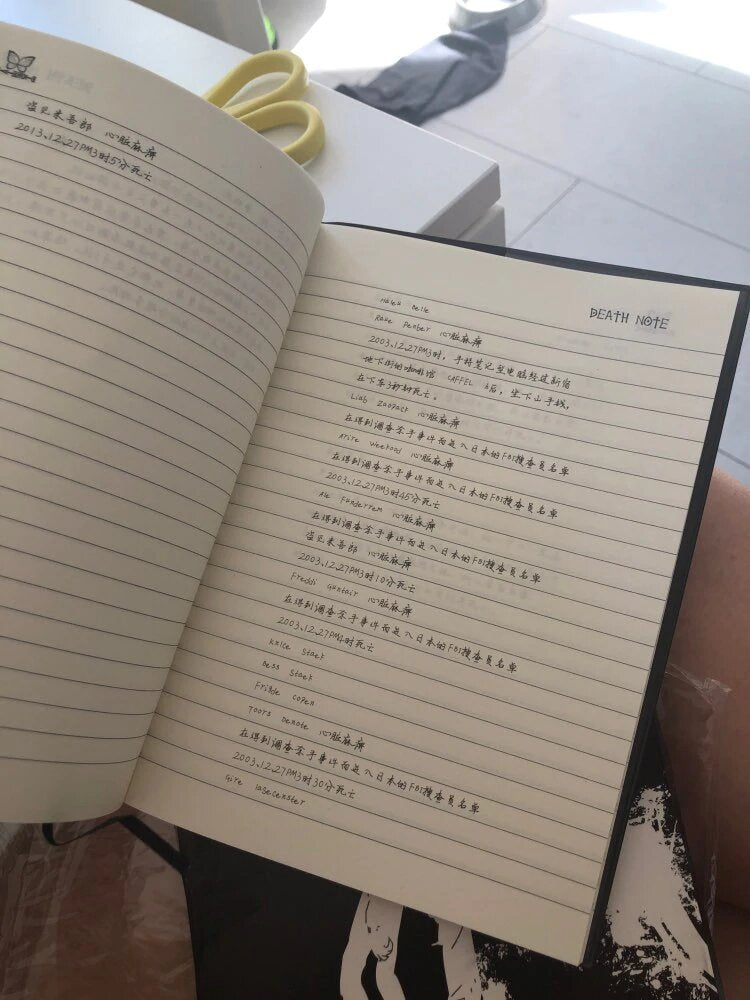 心脏麻痹
2013.12.27PM3时5分死亡
DEATH NOTE
Halek Belle
Raye Penber 心脏麻痹
2003.12.27PM3时，手持笔记型电脑经过新宿
地下街的咖啡馆 CAFFEL 后，坐下山手线，
在下车3秒时死亡。
Liab Zaorack 心脏麻痹
在得到调查杀手事件而进入日本的FBI搜查员名单
Arire Weekood 心脏麻痹
在得到调查杀手事件而进入日本的FBI搜查员名单
2003.12.27PM3时45分死亡
Ale Funderrem 心脏麻痹
在得到调查杀手事件而进入日本的FBI搜查员名单
心脏麻痹
2003.12.27PM3时10分死亡
Freddi Guntair 心脏麻痹
在得到调查杀手事件而进入日本的FBI搜查员名单
2003.12.27PM4时死亡
Knice Staek
Bess Staek
Fridde Copen
Toors Denote 心脏麻痹
在得到调查杀手事件而进入日本的FBI搜查员名单
2003.12.27PM3时30分死亡
Gire